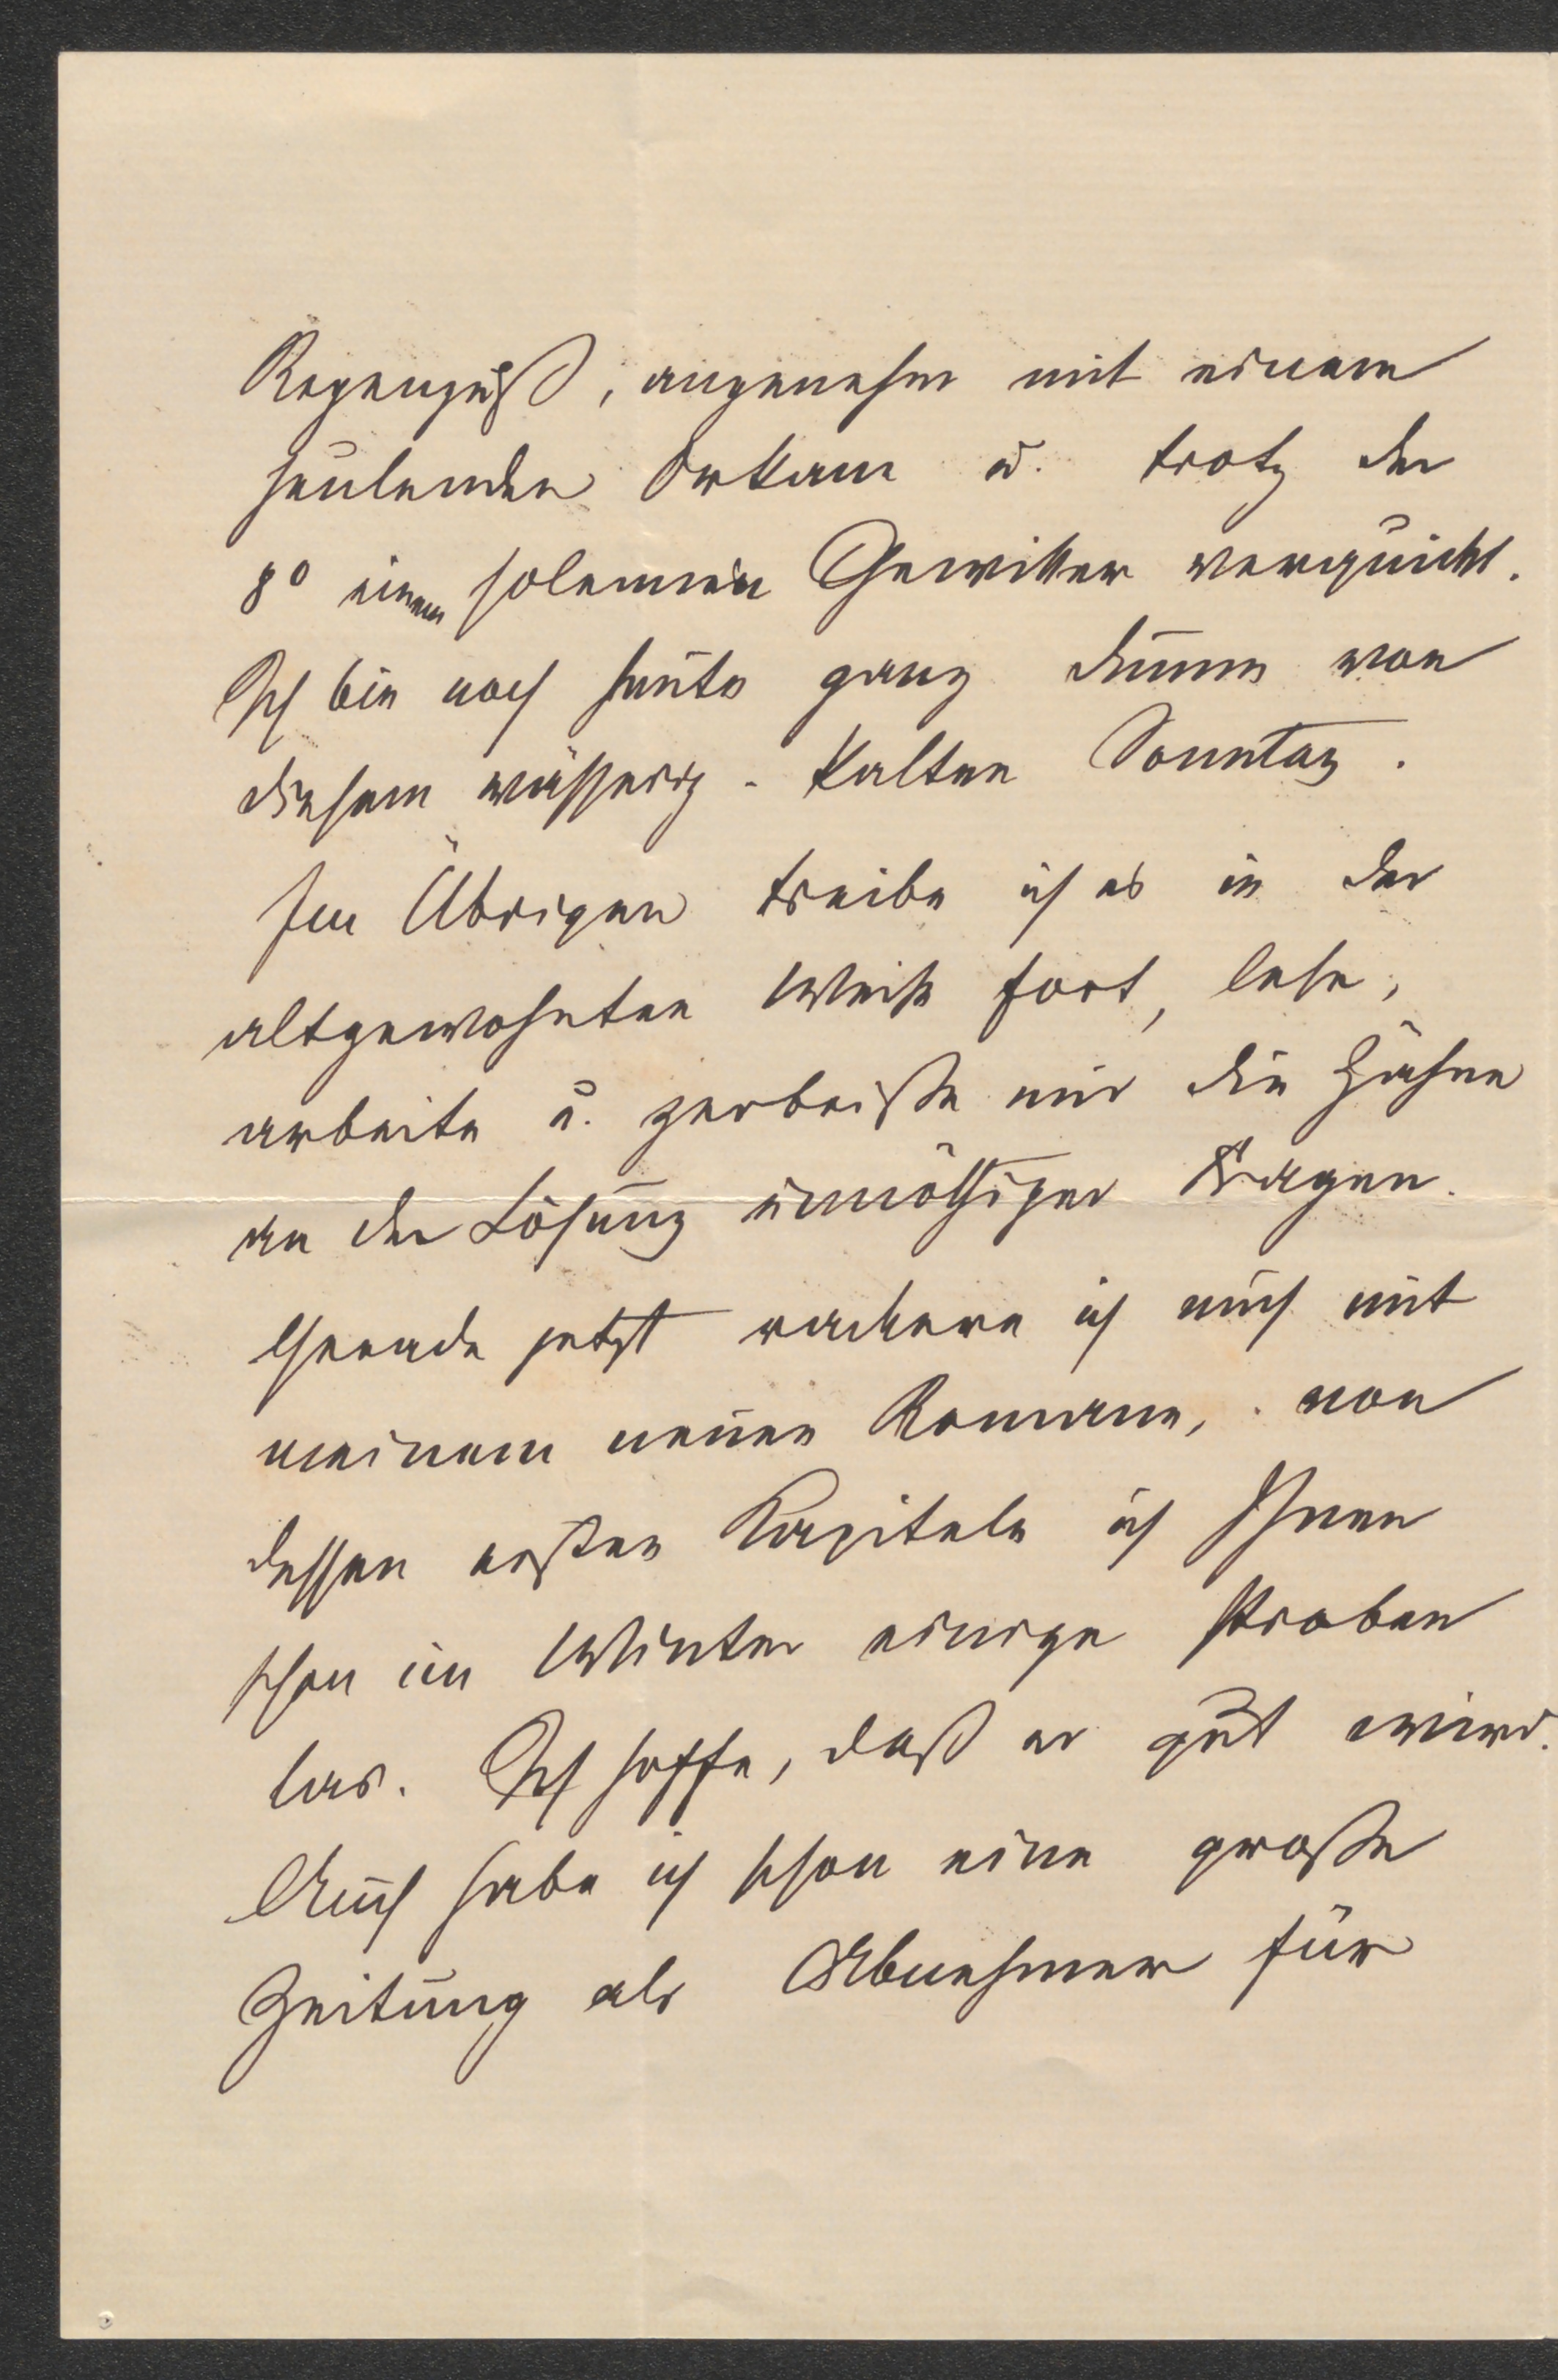 Regenguß, angenehm mit einem
heulenden Orkan u. trotz der
8° einem solennen Gewitter verquickt.
Ich bin noch heute ganz dumm von
diesem wässerig-kalten Sonntag.
Im Übrigen treibe ich es in der
altgewohnten Weise fort, lese,
arbeite u. zerbeiße mir die Zähne
an der Lösung unnöthiger Fragen.
Gerade jetzt rackere ich mich mit
meinem neuen Romane, von
dessen ersten Kapiteln ich Ihnen
schon im Winter einige Proben
las. Ich hoffe, daß er gut wird.
Auch habe ich schon eine große
Zeitung als Abnehmer für